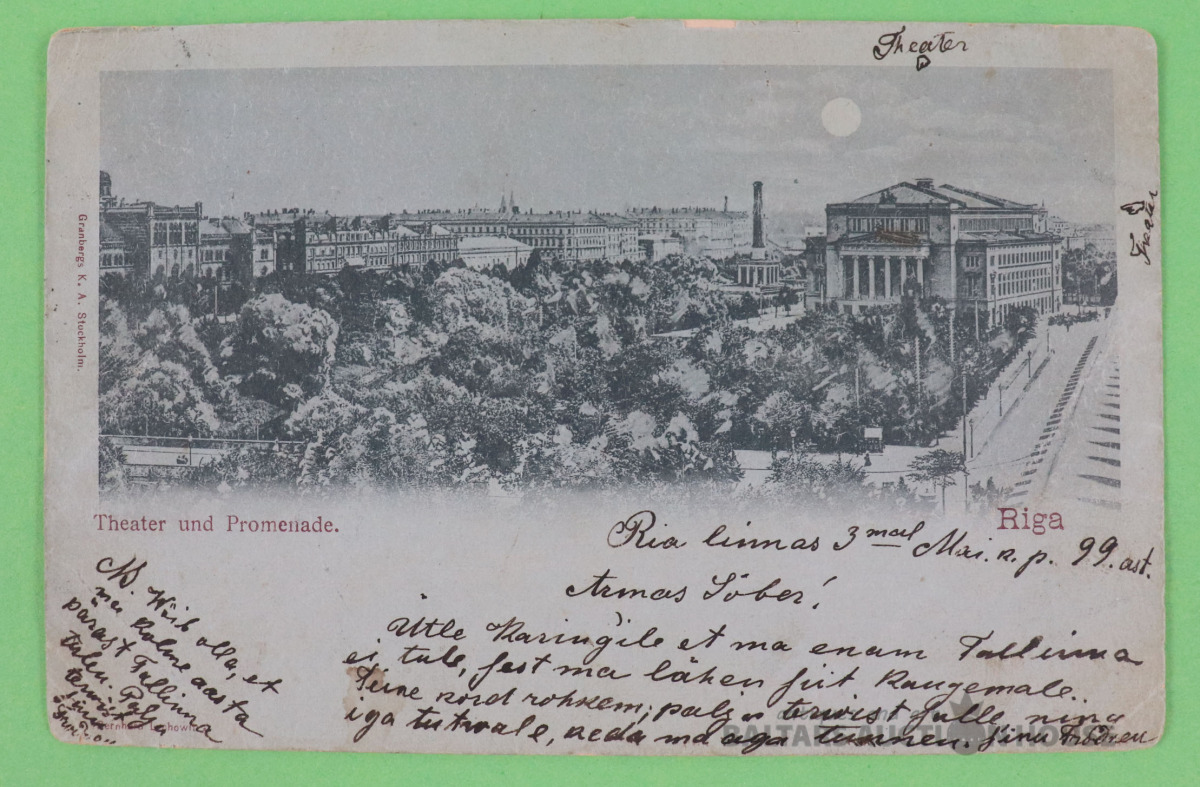 Theater
Theater
Granbergs K. A. Stockholm.
Theater und Promenade.
Riga
Ria linnas 3mal Mai. k. p. 99. ast.
Armas Sõber!
Ütle Karingile et ma enam Tallinna
ei tule, sest ma lähen siit kaugemale.
Teine kord rohkem; palju terwist Sulle, ning
iga tutwale, keda ma aga tunnen. Sinu
N. Wõib olla, et
ma kolme aasta
pärast Tallinna
tulen. Palju
terwist
BALTARS AUCTION HOUSE